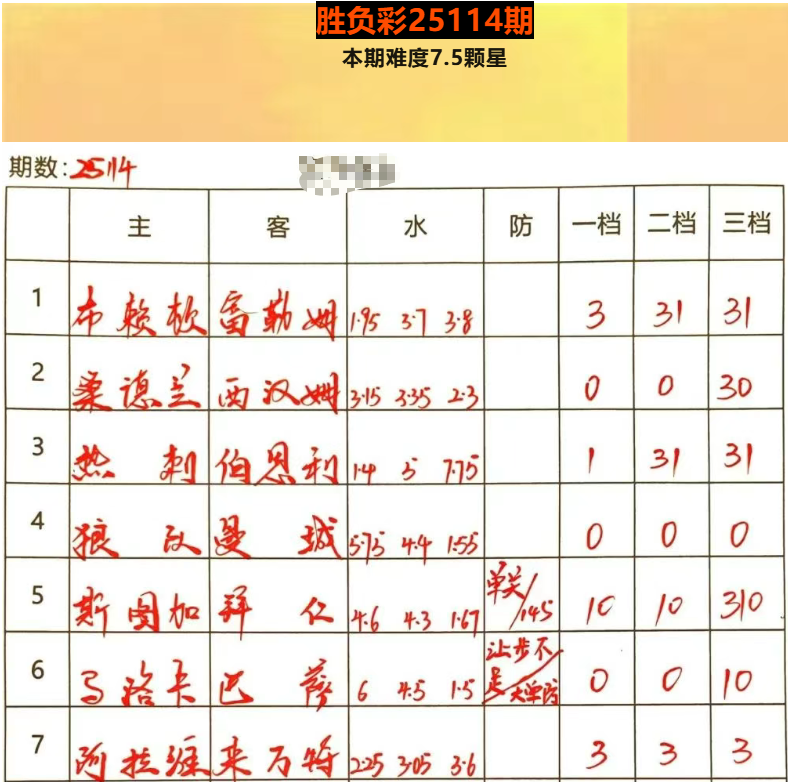 胜负彩25114期
本期难度7.5颗星
期数:25114
主 客 水 防 一档 二档 三档
1 布赖顿 富勒姆 1.95 3.7 3.8 3 31 31
2 桑德兰 西汉姆 3.15 3.35 2.3 0 0 30
3 热刺 伯恩利 1.4 5 7.75 1 31 31
4 狼队 曼城 5.75 4.4 1.55 0 0 0
5 斯图加 拜仁 4.6 4.3 1.67 单关/145 10 10 310
6 马洛卡 巴萨 6 4.5 1.5 让步不是大单防 0 0 10
7 阿拉维 莱万特 2.25 3.05 3.6 3 3 3